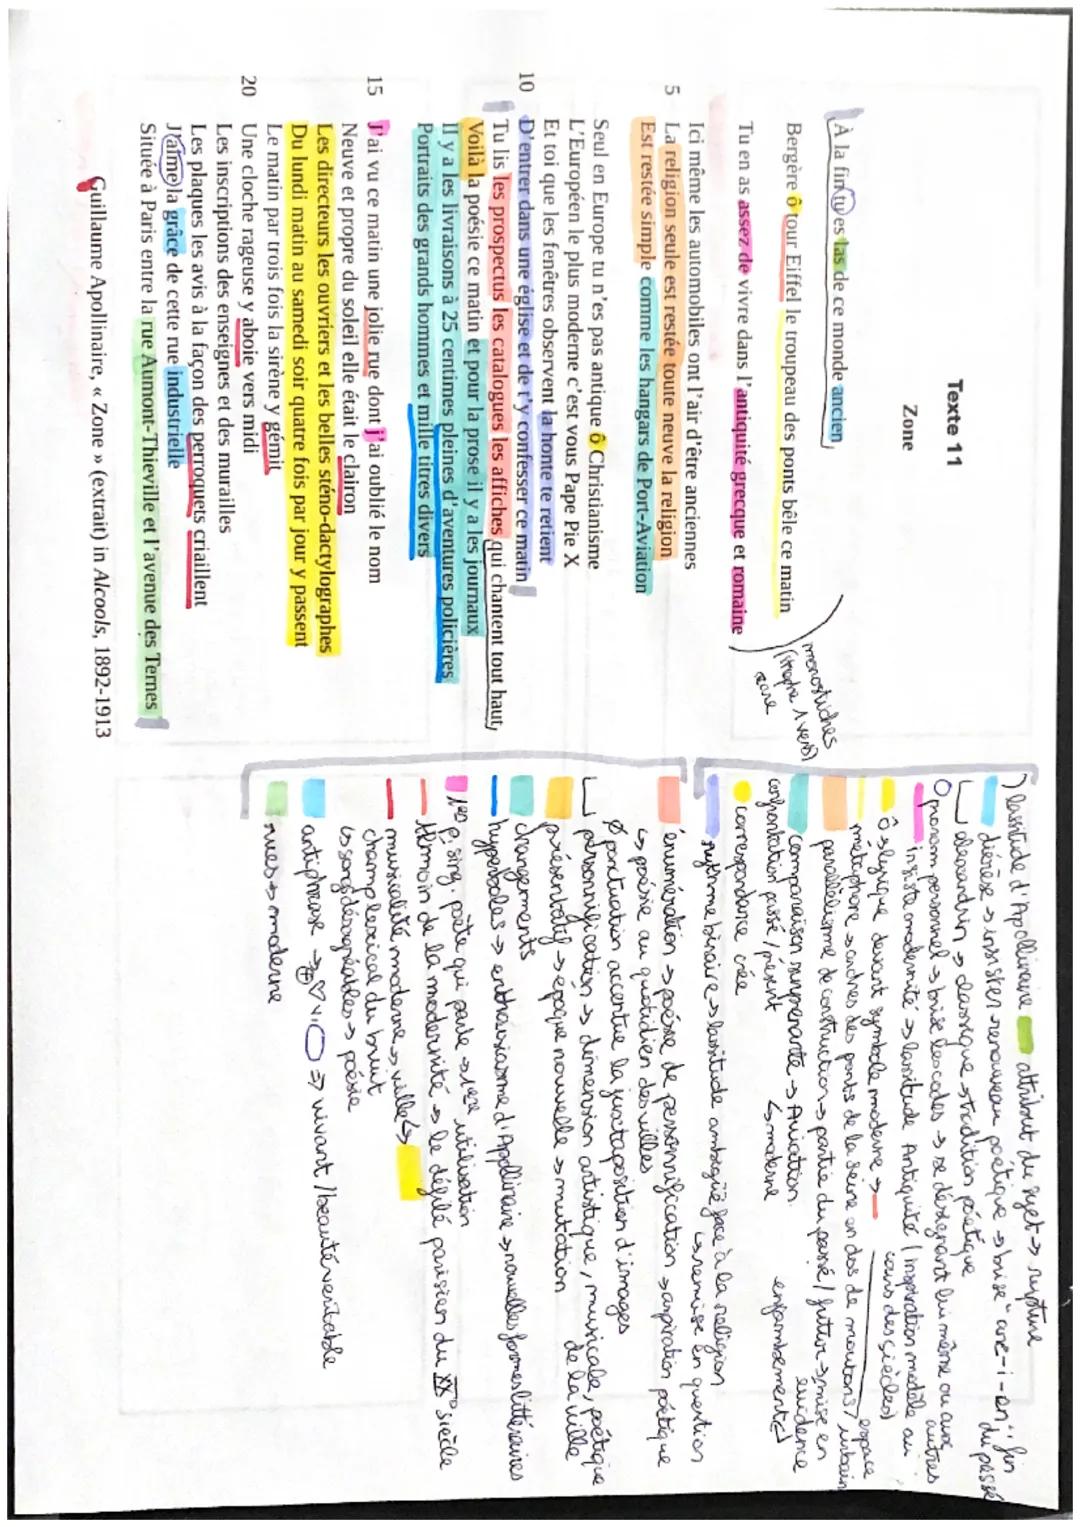 Texte 11
Zone
À la fin tu es las de ce monde ancien
Bergère ô tour Eiffel le troupeau des ponts bêle ce matin
Tu en as assez de vivre dans l'antiquité grecque et romaine
monostiches
(strophe 1 vers)
rare
Ici même les automobiles ont l'air d'être anciennes
5 La religion seule est restée toute neuve la religion
Est restée simple comme les hangars de Port-Aviation
Seul en Europe tu n'es pas antique ô Christianisme
L'Européen le plus moderne c'est vous Pape Pie X
Et toi que les fenêtres observent la honte te retient
10 D'entrer dans une église et de t'y confesser ce matin
Tu lis les prospectus les catalogues les affiches qui chantent tout haut
Voilà la poésie ce matin et pour la prose il y a les journaux
Il y a les livraisons à 25 centimes pleines d'aventures policières
Portraits des grands hommes et mille titres divers
15 J'ai vu ce matin une jolie rue dont j'ai oublié le nom
Neuve et propre du soleil elle était le clairon
Les directeurs les ouvriers et les belles sténo-dactylographes
Du lundi matin au samedi soir quatre fois par jour y passent
Le matin par trois fois la sirène y gémit
20 Une cloche rageuse y aboie vers midi
Les inscriptions des enseignes et des murailles
Les plaques les avis à la façon des perroquets criaillent
J'aime la grâce de cette rue industrielle
Située à Paris entre la rue Aumont-Thieville et l'avenue des Ternes
Guillaume Apollinaire, « Zone » (extrait) in Alcools, 1892-1913
lassitude d'Apollinaire attribut du sujet → rupture
diérèse → insister renouveau poétique → brise "anc-i-en" fin du passé
alexandrin → classique → tradition poétique
pronom personnel → brise les codes → se désignant lui même ou aux autres
insiste modernité → lassitude Antiquité (inspiration modèle au cours des siècles)
Ô → lyrique devant symbole moderne →
métaphore → arches des ponts de la Seine en dos de moutons / espace urbain
parallélisme de construction → partie du passé / futur → mise en évidence
comparaison surprenante → Aviation enjambement
confrontation passé / présent ↳ moderne
correspondance créée
rythme binaire → lassitude ambigüe face à la religion
↳ remise en question
énumération → poésie de personnification → aspiration poétique
↳ poésie au quotidien des villes
Ø ponctuation accentue la juxtaposition d'images
personnification → dimension artistique, musicale, poétique de la ville
présentatif → époque nouvelle → mutation
changements
hyperboles → enthousiasme d'Apollinaire → nouvelles formes littéraires
1ere p. sing. poète qui parle → 1ere utilisation
témoin de la modernité → le défilé parisien du XXe siècle
musicalité moderne → ville
champ lexical du bruit
↳ sons désagréables → poésie
antiphrase → ⊕ ♡ v. ⇒ vivant / beauté véritable
rues → moderne